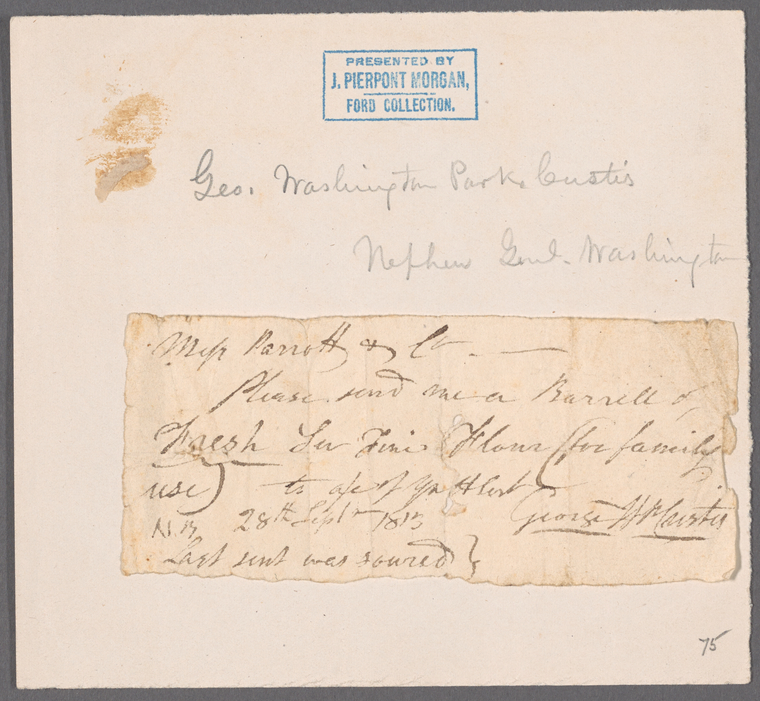 PRESENTED BY
J. PIERPONT MORGAN,
FORD COLLECTION.
Geo. Washington Park Custis
Nephew Genl. Washington
Messrs Parrott & Co
Please send me a Barrell of
Fresh Su Fine Flour (for family
use) to a/c of Yr Hbl
28th Septr 1813 George W P Custis
N.B.
Last sent was soured }
75